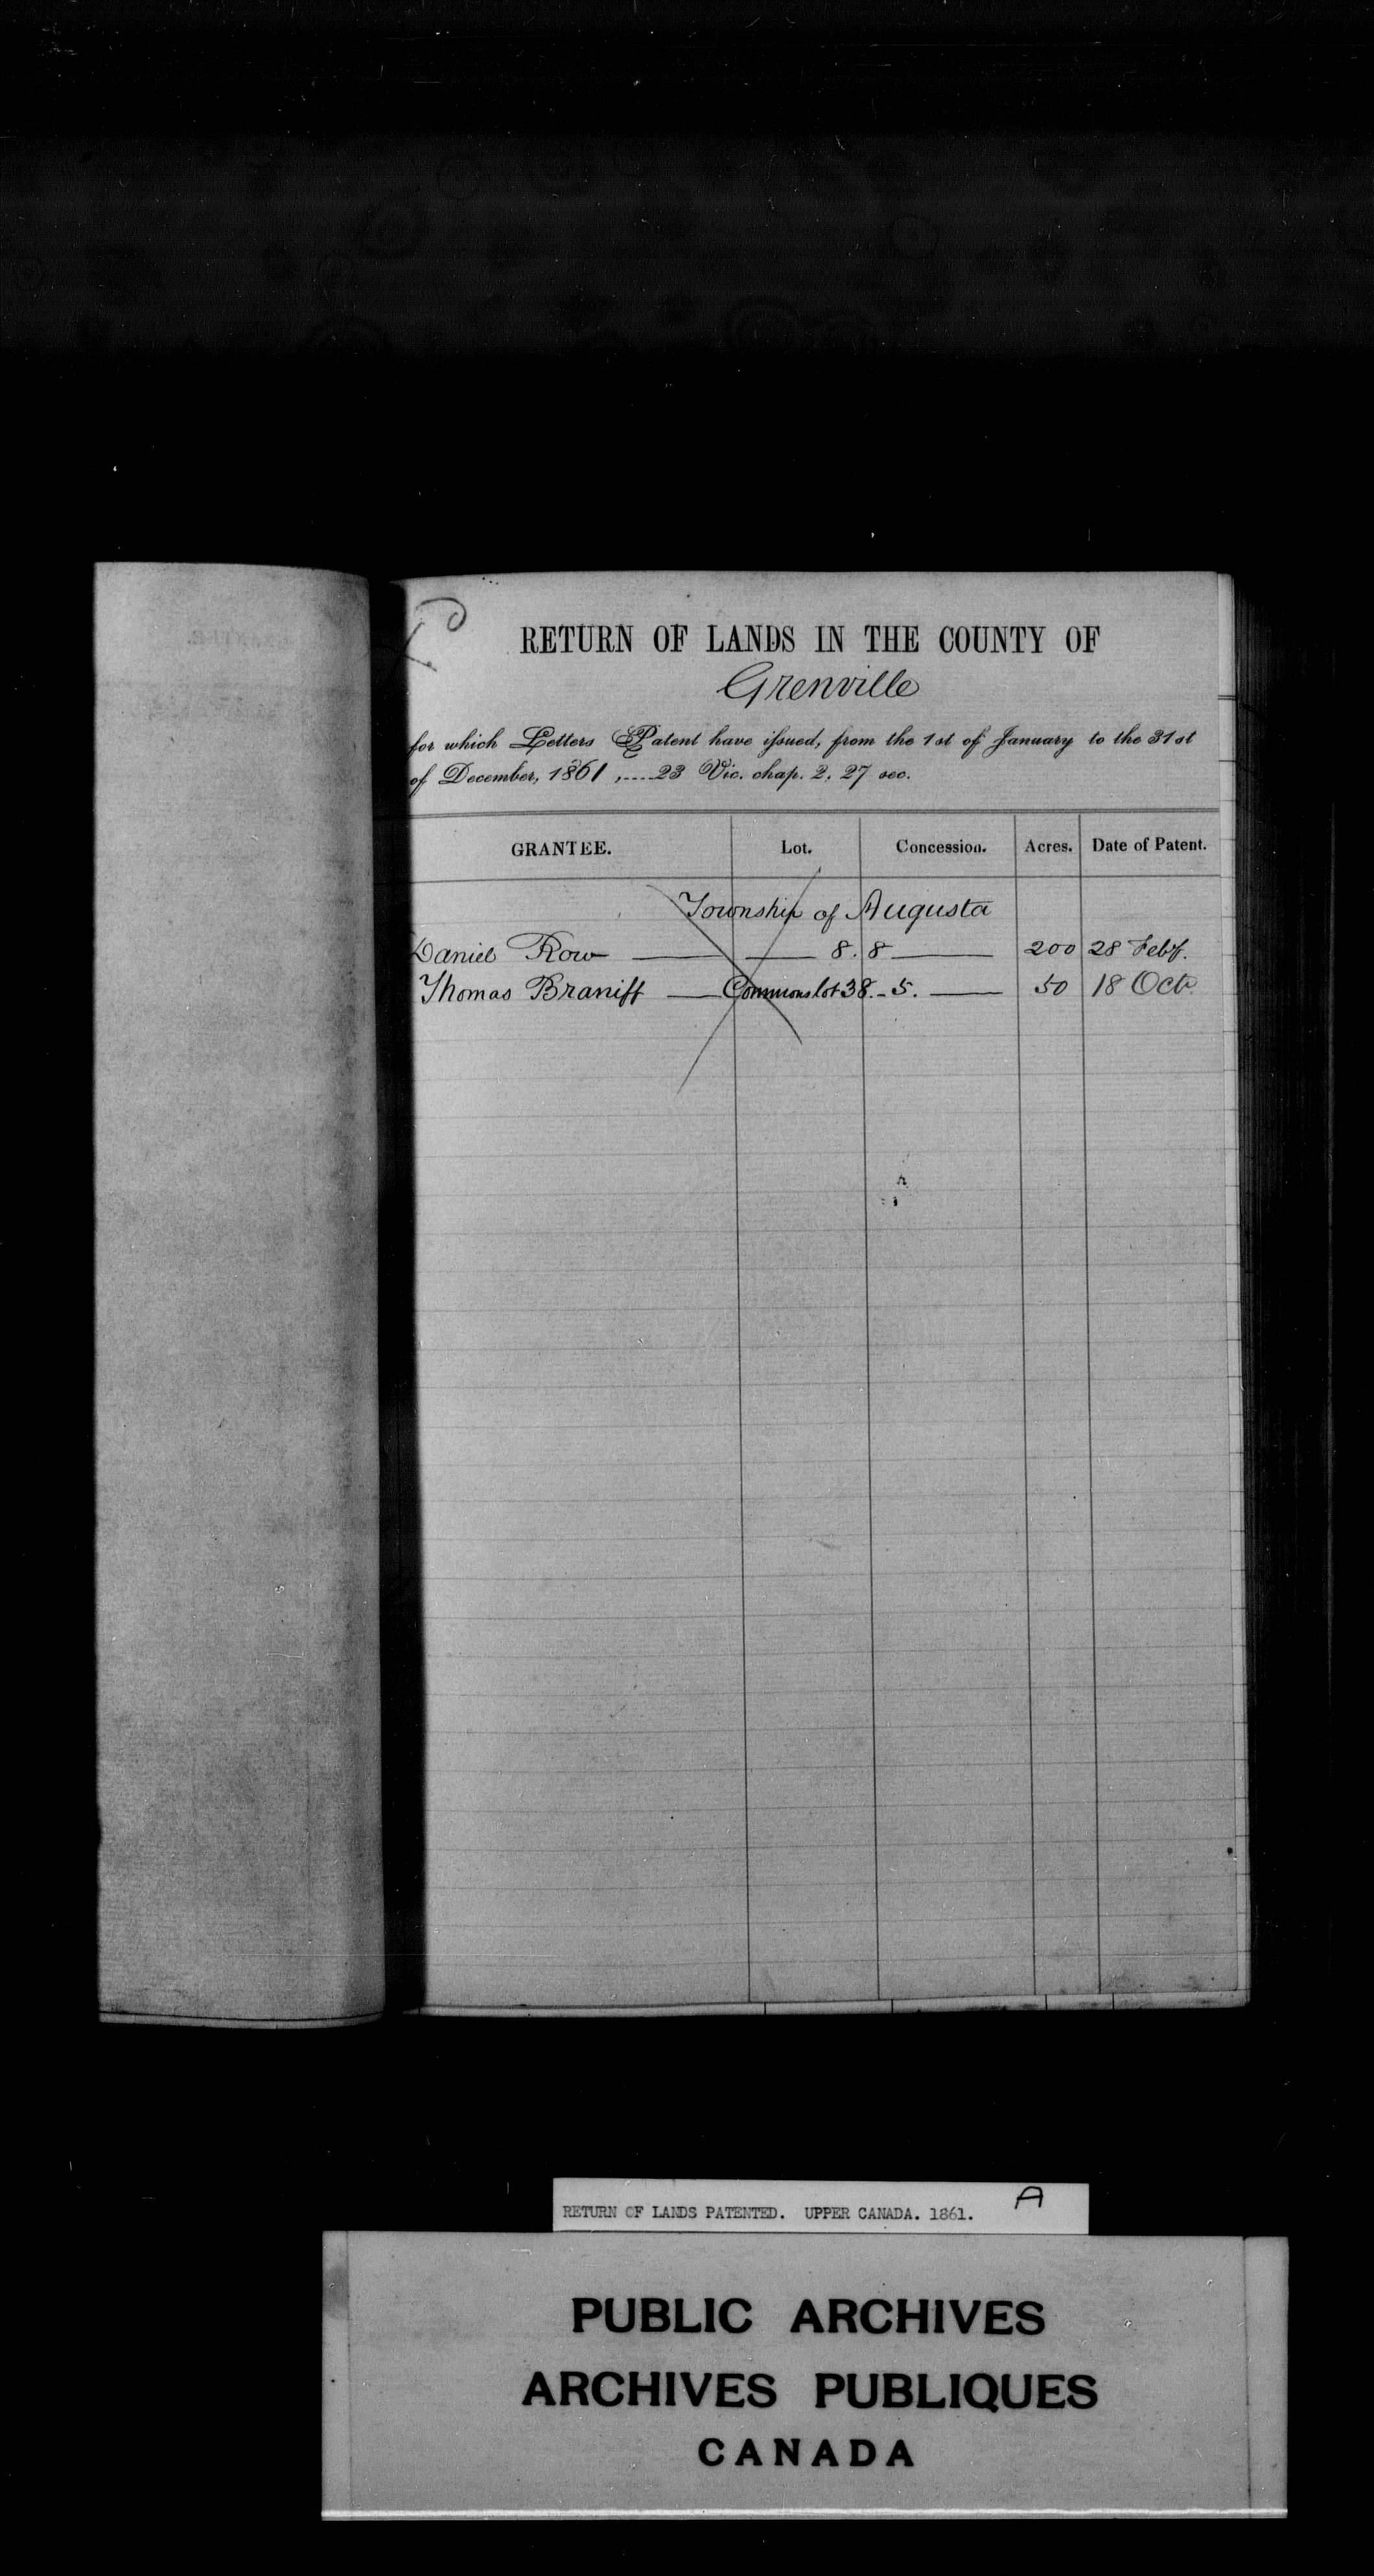 RETURN OF LANDS IN THE COUNTY OF
Grenville
for which Letters Patent have issued, from the 1st of January to the 31st
of December, 1861, ....23 Vic. chap. 2, 27 sec.
GRANTEE. Lot. Concession. Acres. Date of Patent.
Township of Augusta
Daniel Row — 8. 8 — 200 28 Feby.
Thomas Braniff — Commons lot 38. - 5. — 50 18 Oct.
RETURN OF LANDS PATENTED. UPPER CANADA. 1861. A
PUBLIC ARCHIVES
ARCHIVES PUBLIQUES
CANADA